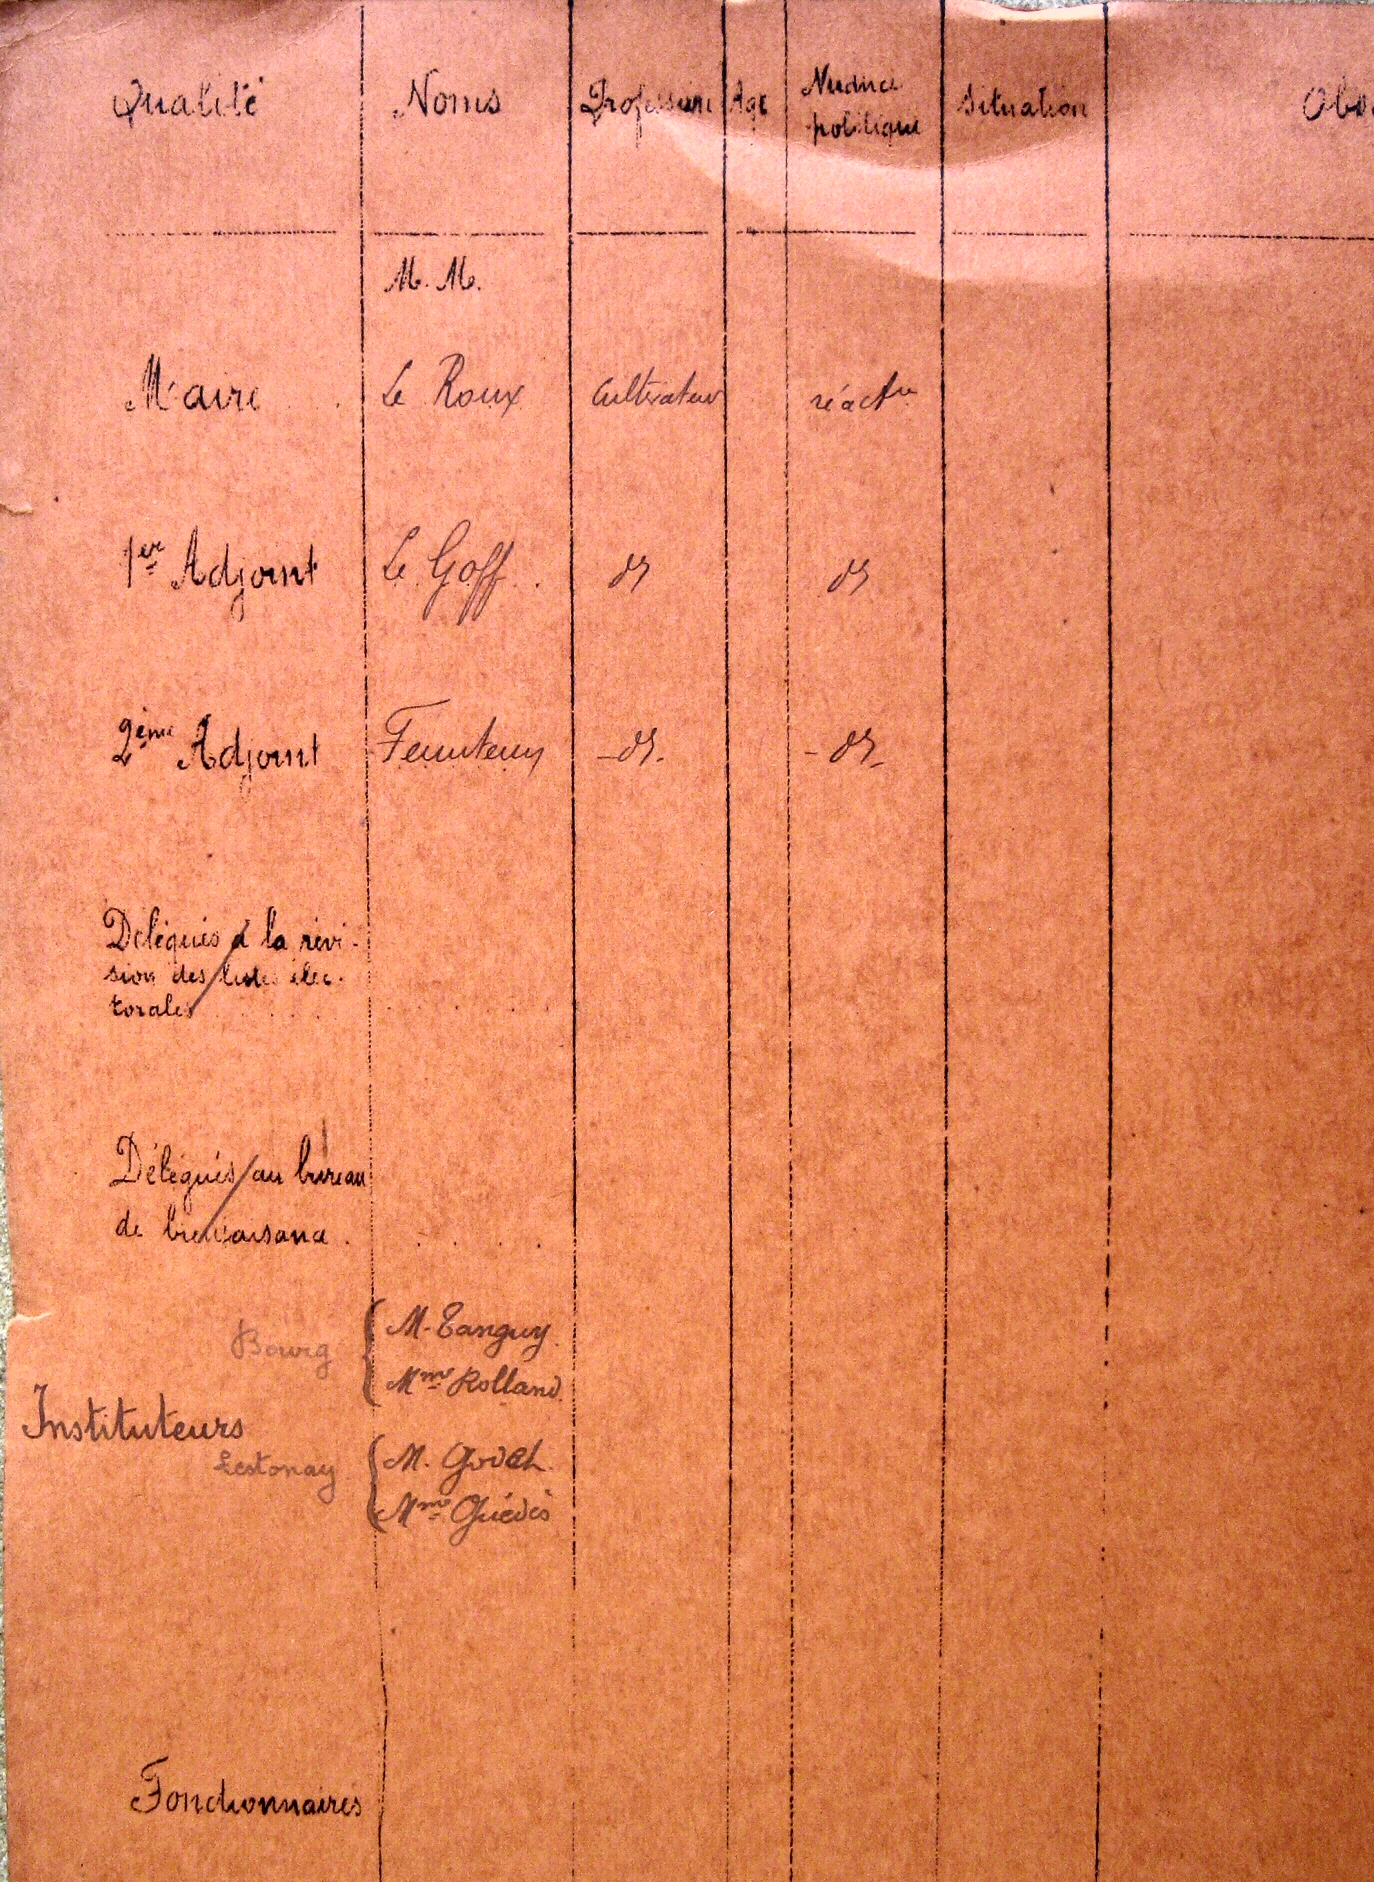 Qualité Noms Profession Age Nuance politique Situation Obs
M. M.
Maire Le Roux Cultivateur réact re
1er Adjoint Le Goff dº dº
2ème Adjoint - dº - - dº -
Délégués à la révi-
sion des listes élec-
torales
Délégués au bureau
de bienfaisance
Bourg M. Tanguy
Mme Rolland
Instituteurs
Lestonay M. Govch
Mme Guédès
Fonctionnaires